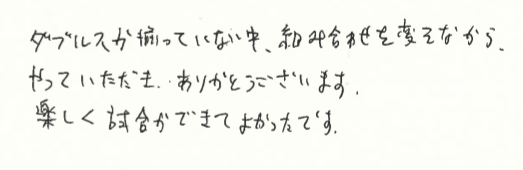 ダブルスが揃っていない中、組み合わせを変えながら、
やっていただき、ありがとうございます。
楽しく試合ができてよかったです。